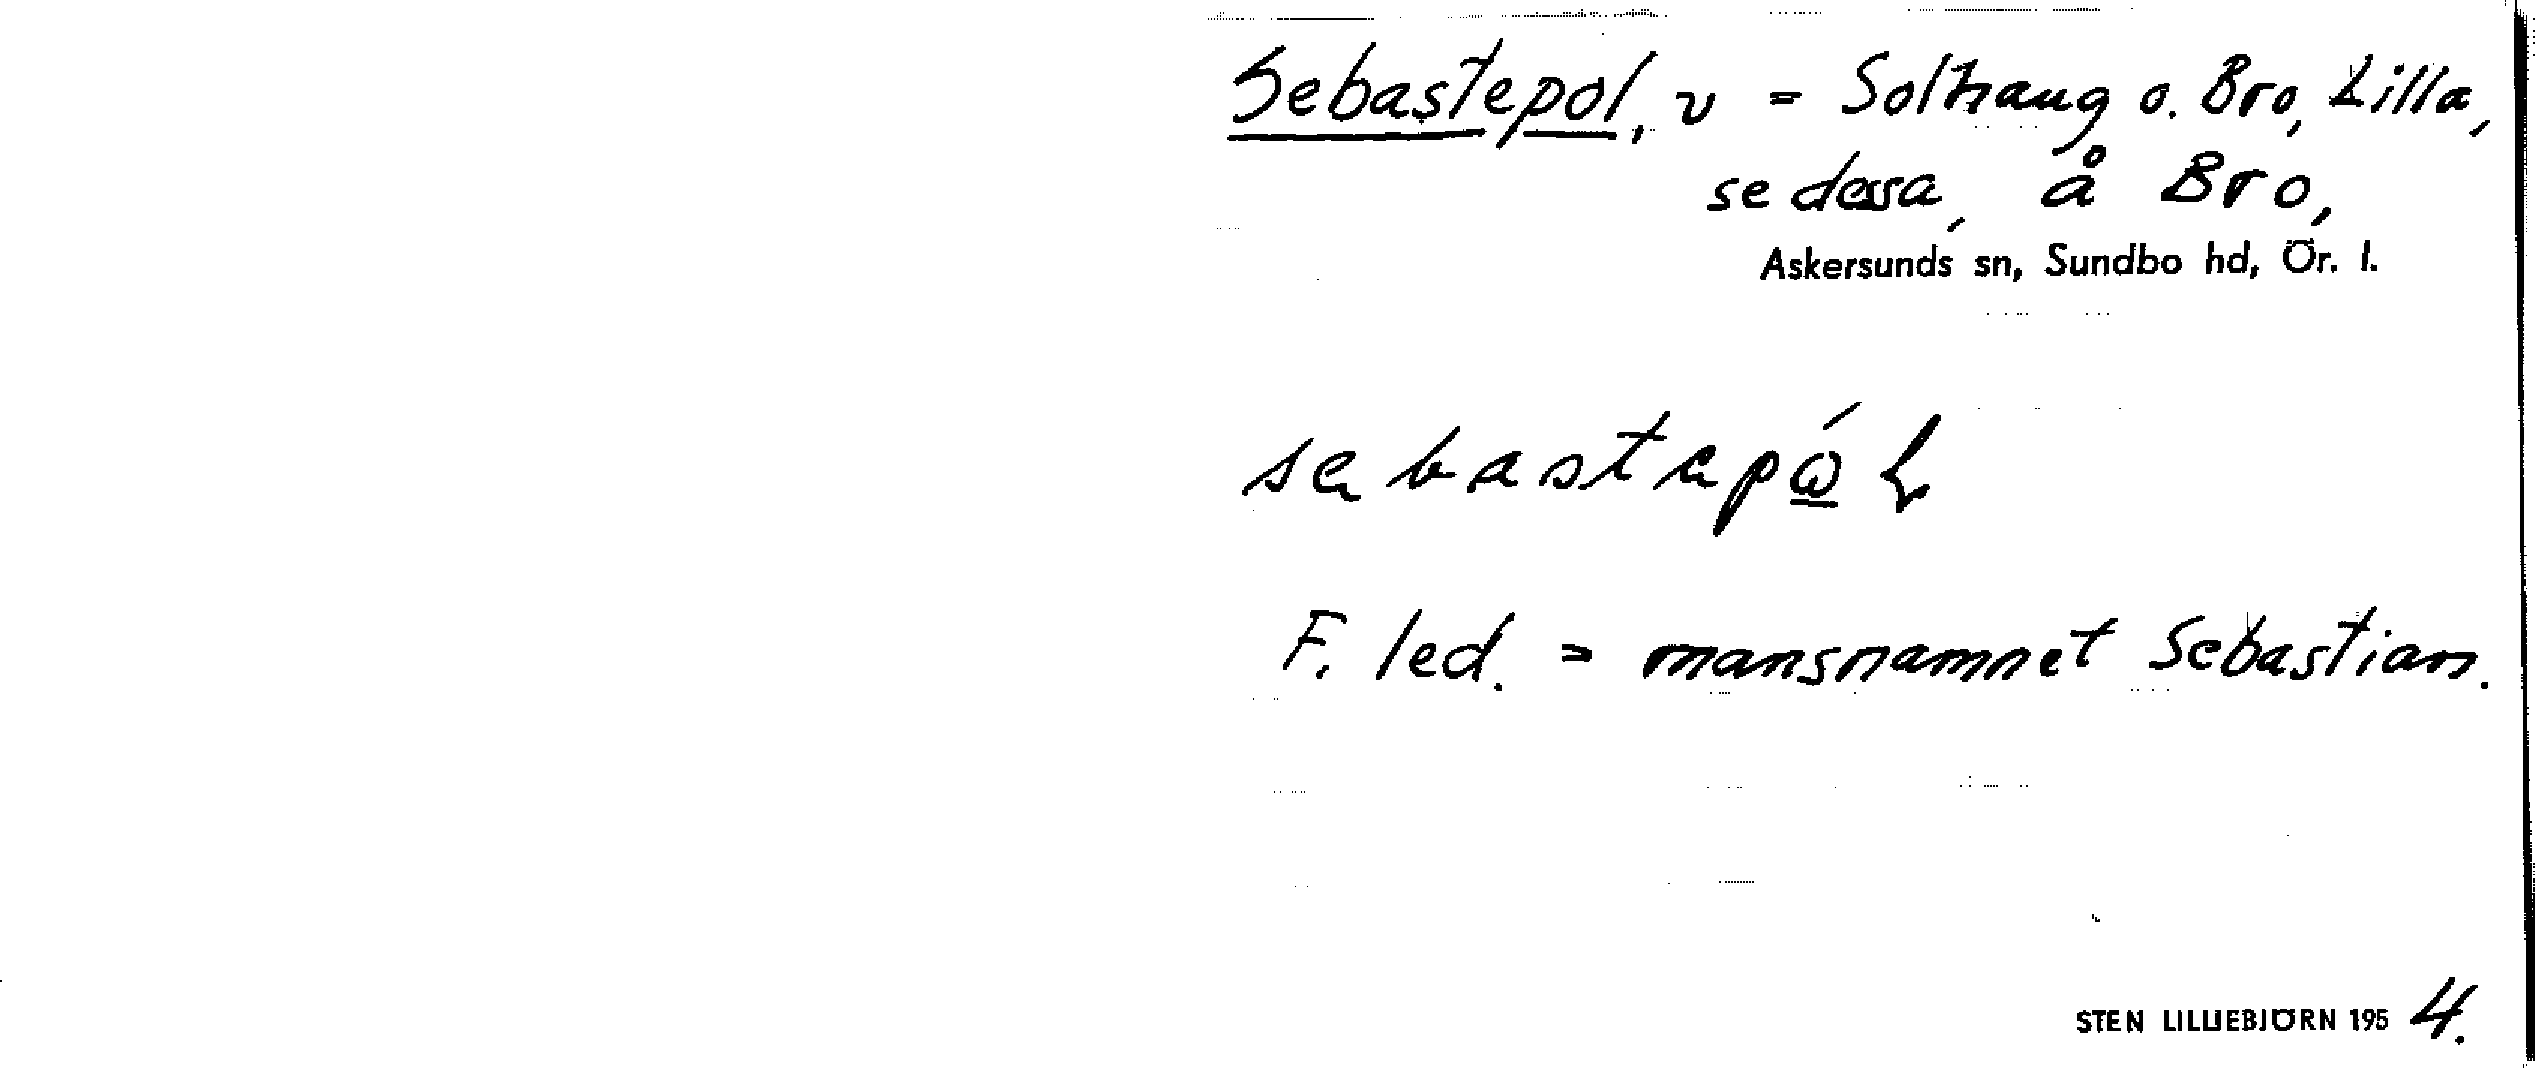 Sebastepol, v = Solhaug o. Bro, Lilla,
se dessa, å Bro,
Askersunds sn, Sundbo hd, Ör. l.
F. led. = mansnamnet Sebastian.
STEN LILLIEBJÖRN 1954.